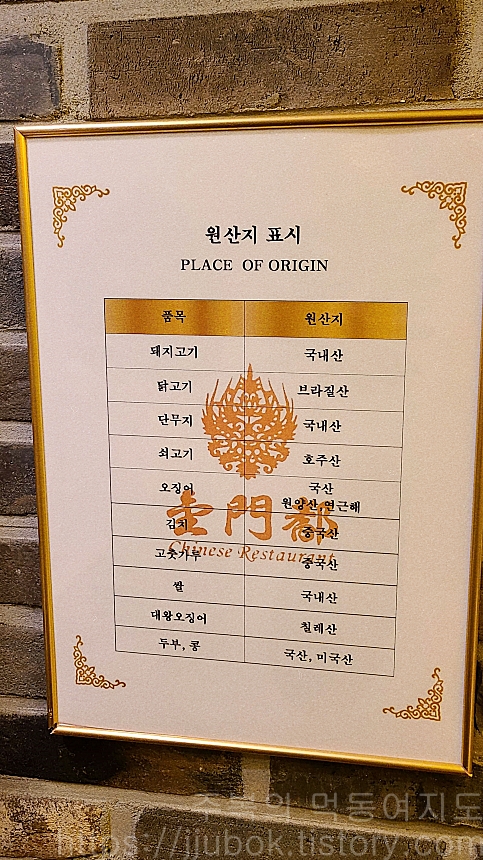 원산지 표시
PLACE OF ORIGIN
품목 원산지
돼지고기 국내산
닭고기 브라질산
단무지 국내산
쇠고기 호주산
오징어 국산
원양산 연근해
김치 중국산
고춧가루 중국산
쌀 국내산
대왕오징어 칠레산
두부, 콩 국산, 미국산
門都
Chinese Restaurant
먹동여지도
https://jjubok.tistory.com